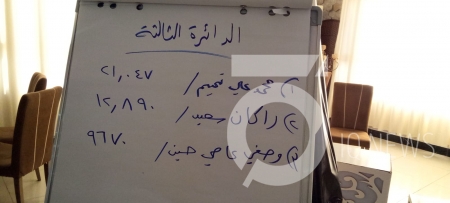 الدائرة الثالثة
١) محمد علي تميم / ٢١,٠٤٧
٢) راكان سعيد / ١٢,٨٩٠
٣) وصفي عاصي حسين / ٩٦٧٠
NEWS